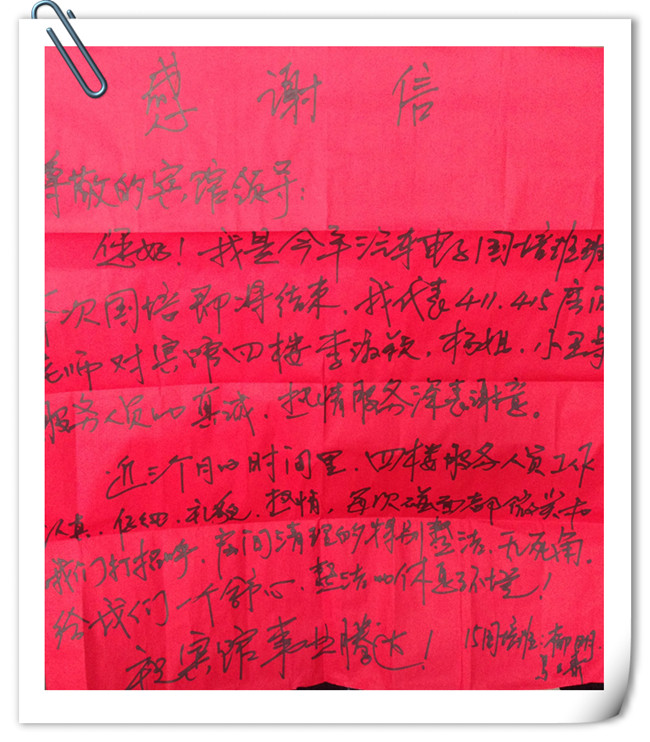 感谢信
尊敬的宾馆领导：
您好！我是今年汽车电子国培班班
次国培即将结束，我代表411、415房间
老师对宾馆四楼李淑颖、杨姐、小王等
服务人员的真诚、热情服务深表谢意。
近三个月的时间里，四楼服务人员工作
认真、仔细、礼貌、热情，每次碰面都微笑和
我们打招呼，房间清理的特别整洁，无死角，
给我们一个舒心、整洁的休息环境！
祝宾馆事业腾达！
15国培班：柳明